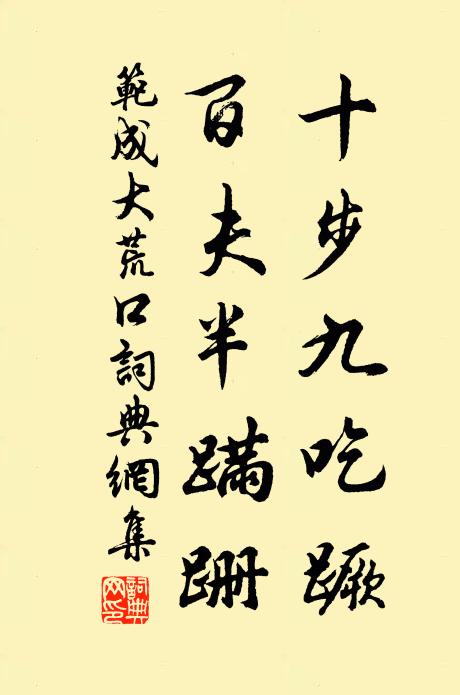 十步九吃蹶
百夫半蹣跚
範成大荒口詞典網集
詞典網印